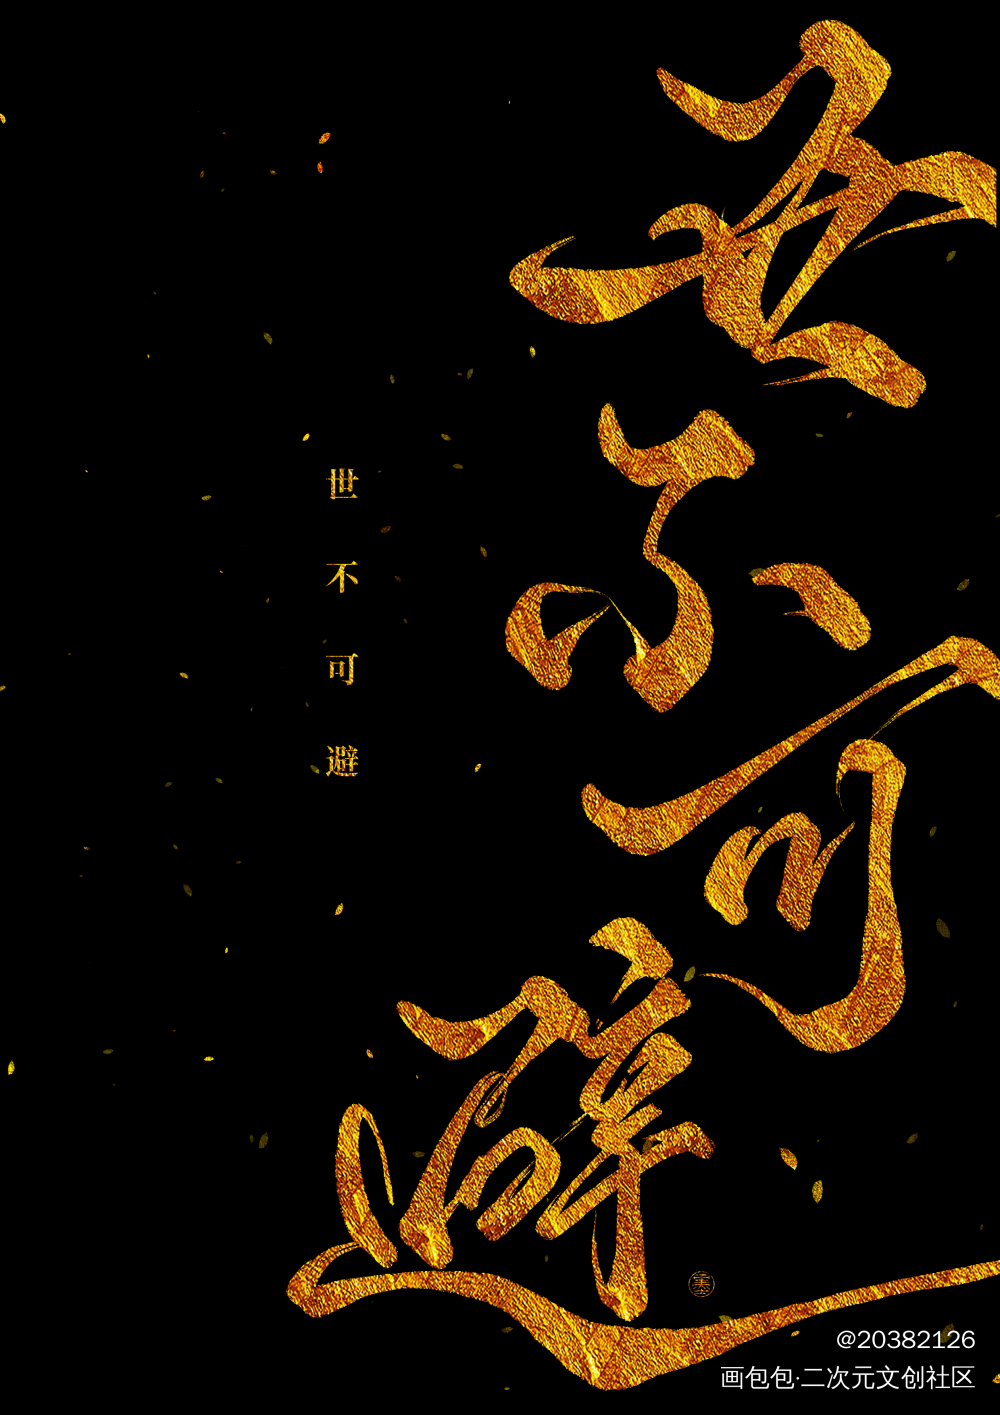 世不可避
世不可避
@20382126
画包包·二次元文创社区